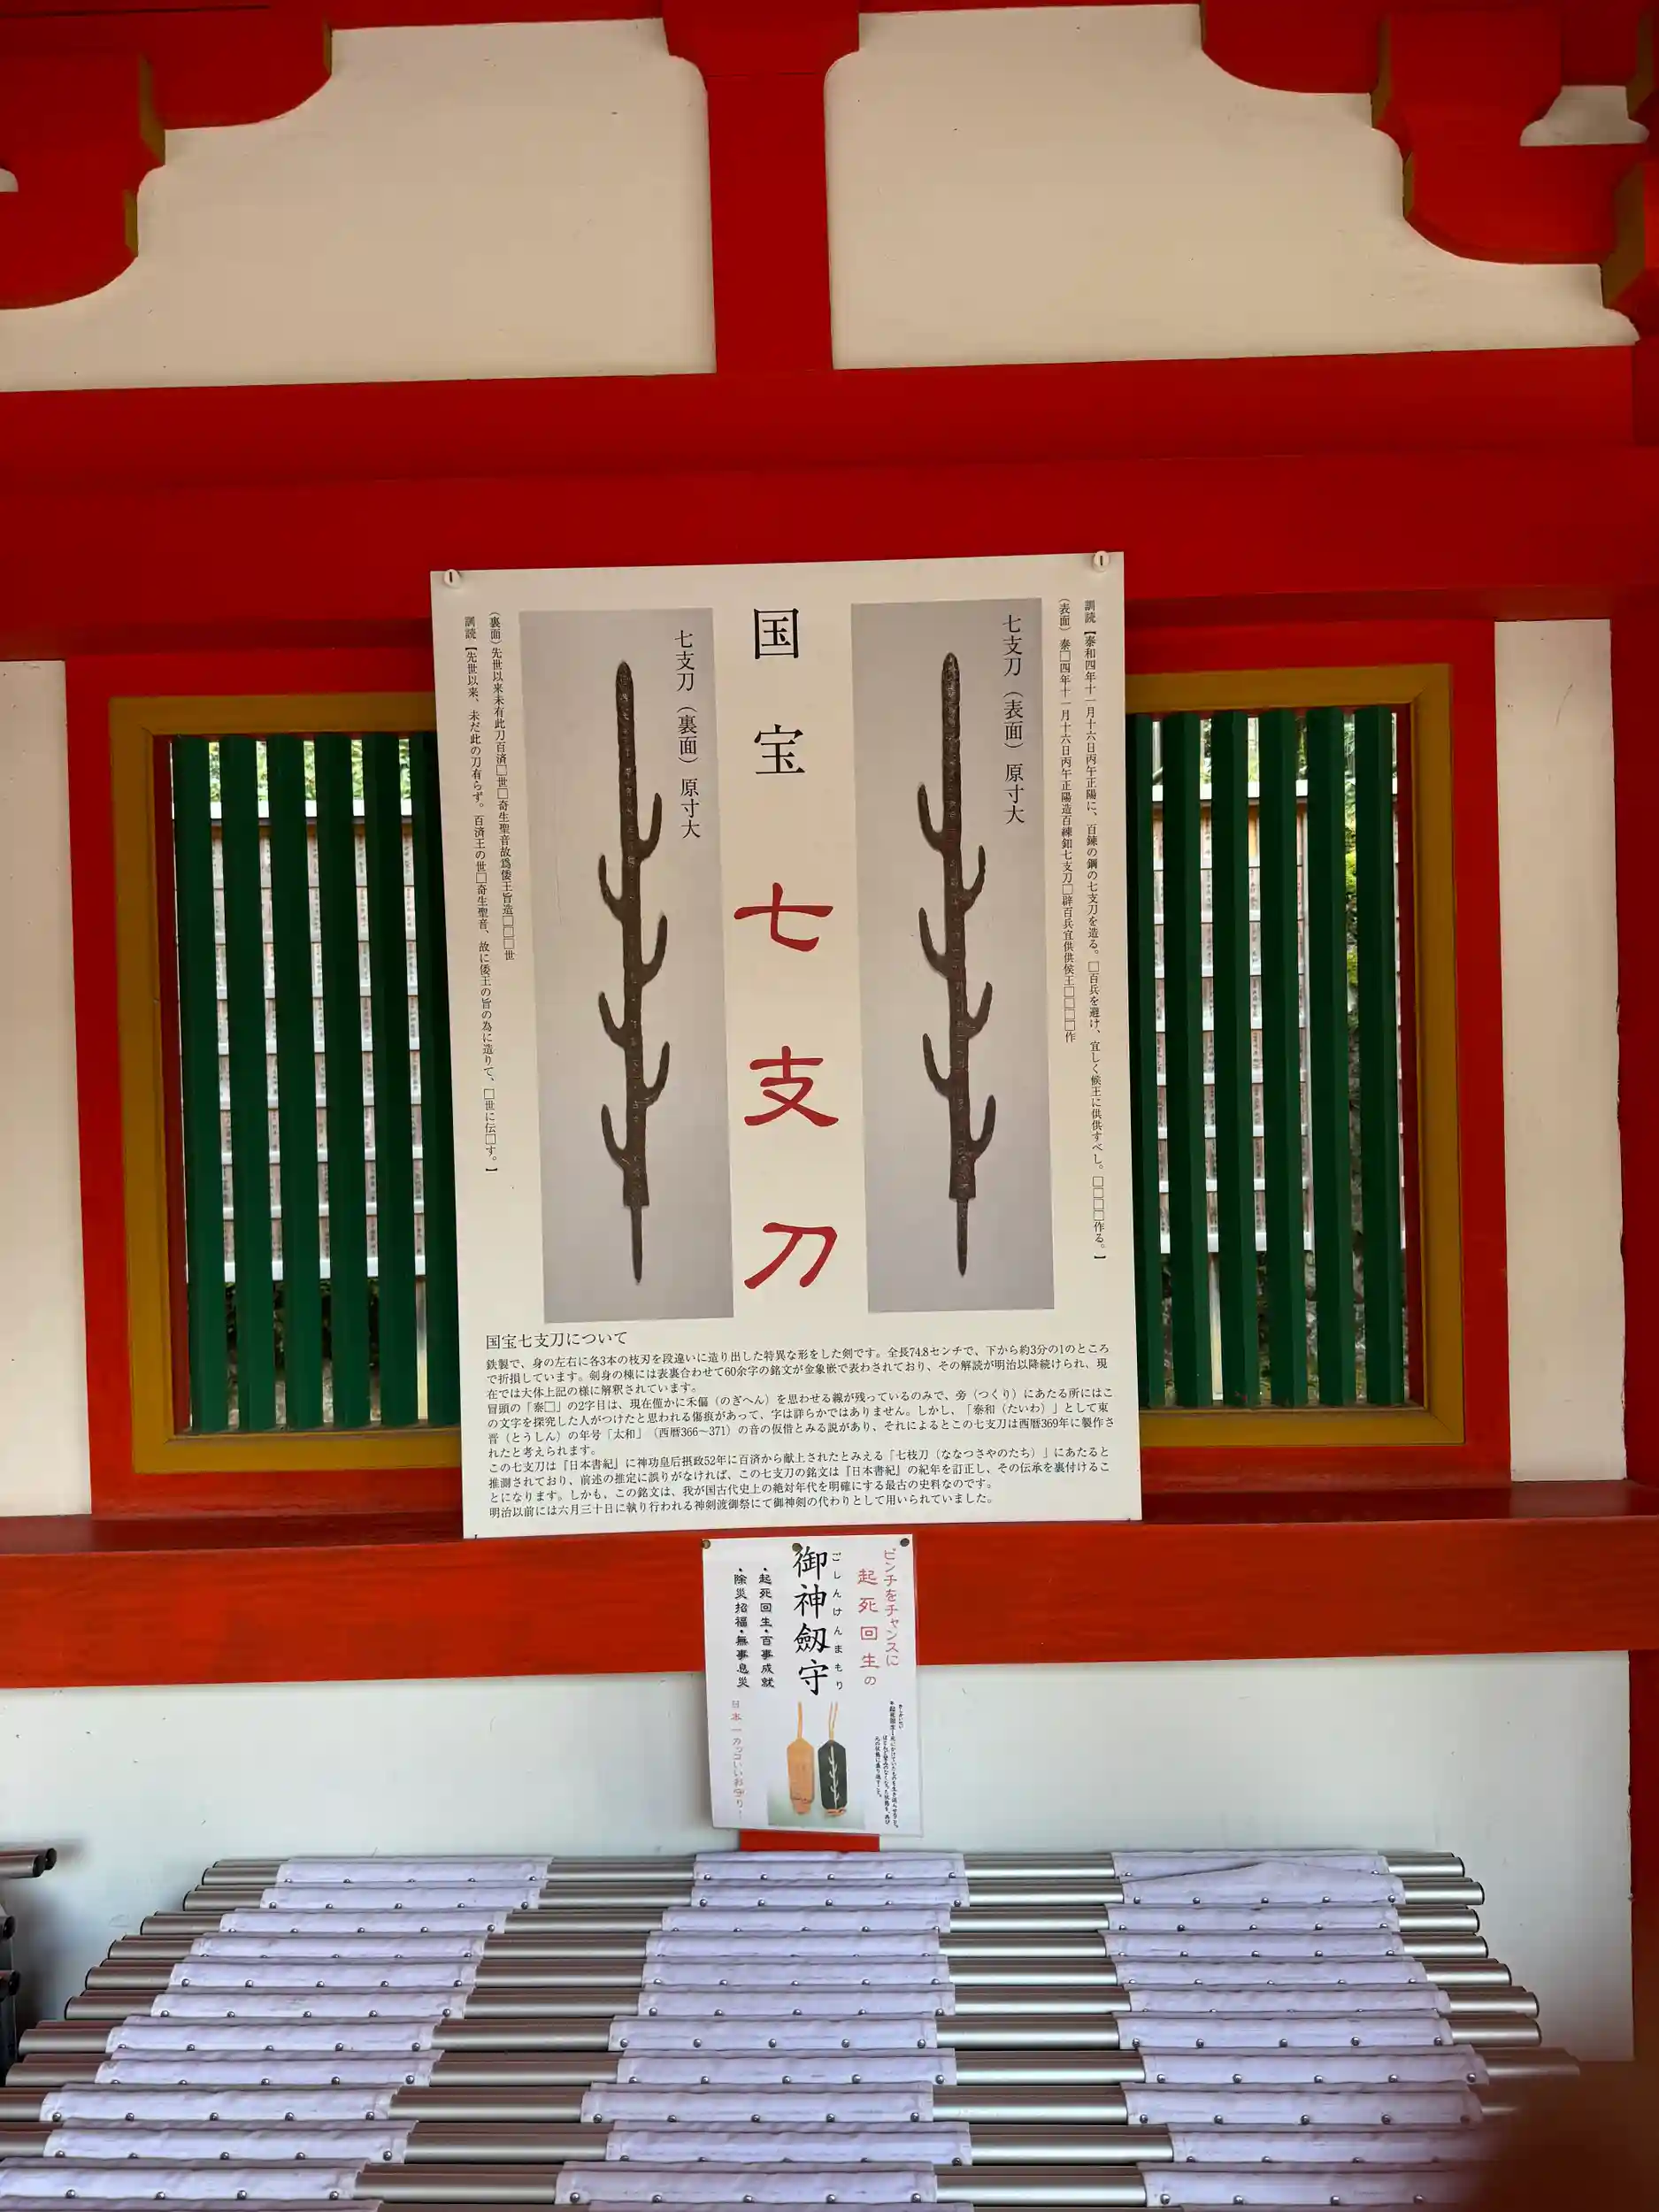 国宝 七支刀
訓読【泰和四年十一月十六日丙午正陽に、百錬の鋼の七支刀を造る。□百兵を避け、宜しく候王に供供すべし。□□□□作る。】
(表面) 泰□四年十一月十六日丙午正陽造百練釦七支刀□辟百兵宜供供侯王□□□□作
七支刀(表面)原寸大
七支刀(裏面)原寸大
(裏面)先世以来未有此刀百済□世□奇生聖音故爲倭王旨造□□□世
訓読【先世以来、未だ此の刀有らず。百済王の世□奇生聖音、故に倭王の旨の為に造りて、□世に伝□す。】
国宝七支刀について
鉄製で、身の左右に各3本の枝刃を段違いに造り出した特異な形をした剣です。全長74.8センチで、下から約3分の1のところ
で折損しています。剣身の棟には表裏合わせて60余字の銘文が金象嵌で表わされており、その解読が明治以降続けられ、現
在では大体上記の様に解釈されています。
冒頭の「泰□」の2字目は、現在僅かに禾偏（のぎへん）を思わせる線が残っているのみで、旁（つくり）にあたる所にはこ
の文字を探究した人がつけたと思われる傷痕があって、字は詳らかではありません。しかし、「泰和（たいわ）」として東
晋（とうしん）の年号「太和」（西暦366～371）の音の仮借とみる説があり、それによるとこの七支刀は西暦369年に製作さ
れたと考えられます。
この七支刀は『日本書紀』に神功皇后摂政52年に百済から献上されたとみえる「七枝刀（ななつさやのたち）」にあたると
推測されており、前述の推定に誤りがなければ、この七支刀の銘文は『日本書紀』の紀年を訂正し、その伝承を裏付けるこ
とになります。しかも、この銘文は、我が国古代史上の絶対年代を明確にする最古の史料なのです。
明治以前には六月三十日に執り行われる神剣渡御祭にて御神剣の代わりとして用いられていました。
ピンチをチャンスに
起死回生の
ごしんけんまもり
御神劔守
・起死回生・百事成就
・除災招福・無事息災
日本一カッコいいお守り！